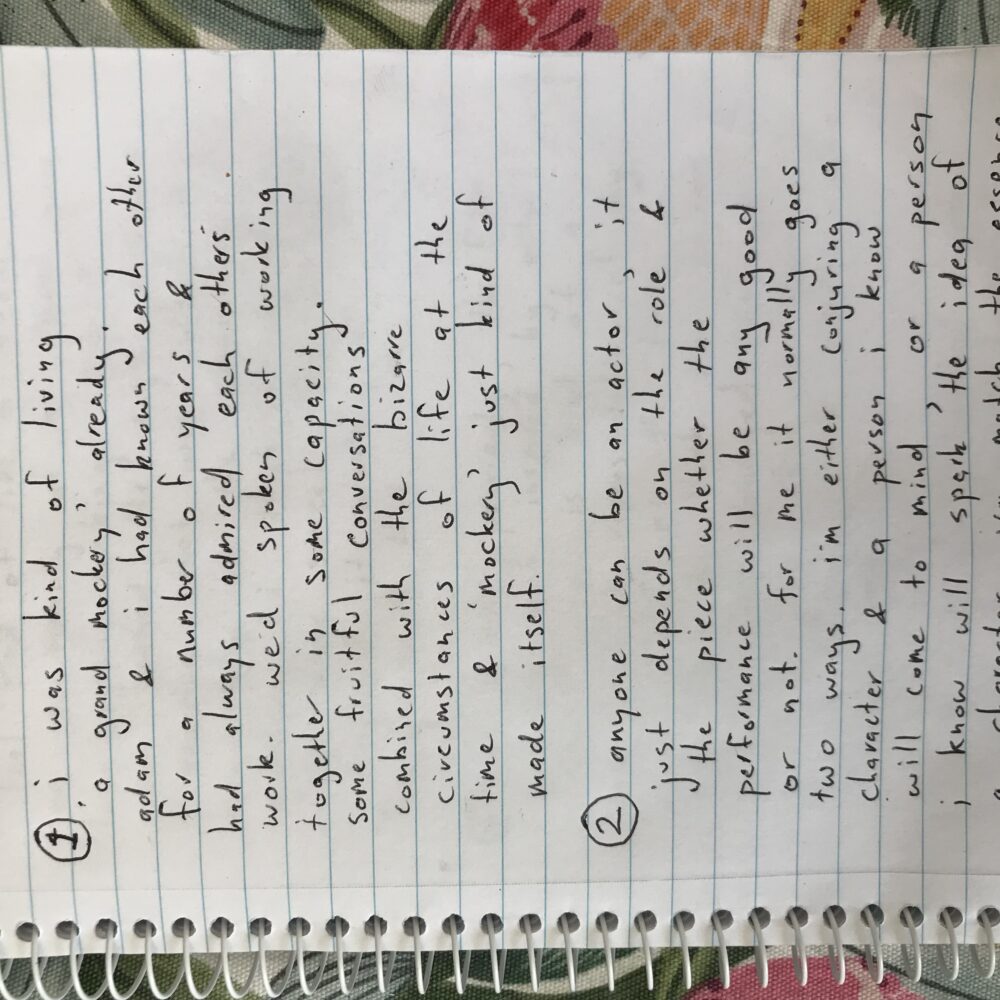 ① i was kind of living
a grand mockery' already.
adam & i had known each other
for a number of years &
had always admired each others
work. we'd spoken of working
together in some capacity.
some fruitful conversations
combined with the bizarre
circumstances of life at the
time & 'mockery' just kind of
made itself.
② anyone can be an actor, it
just depends on the role &
the piece whether the
performance will be any good
or not. for me it normally goes
two ways. im either conjuring a
character & a person i know
will come to mind or a person
i know will 'spark' the idea of
a character match the essence